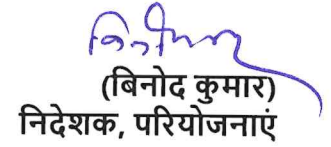 (बिनोद कुमार)
निदेशक, परियोजनाएं